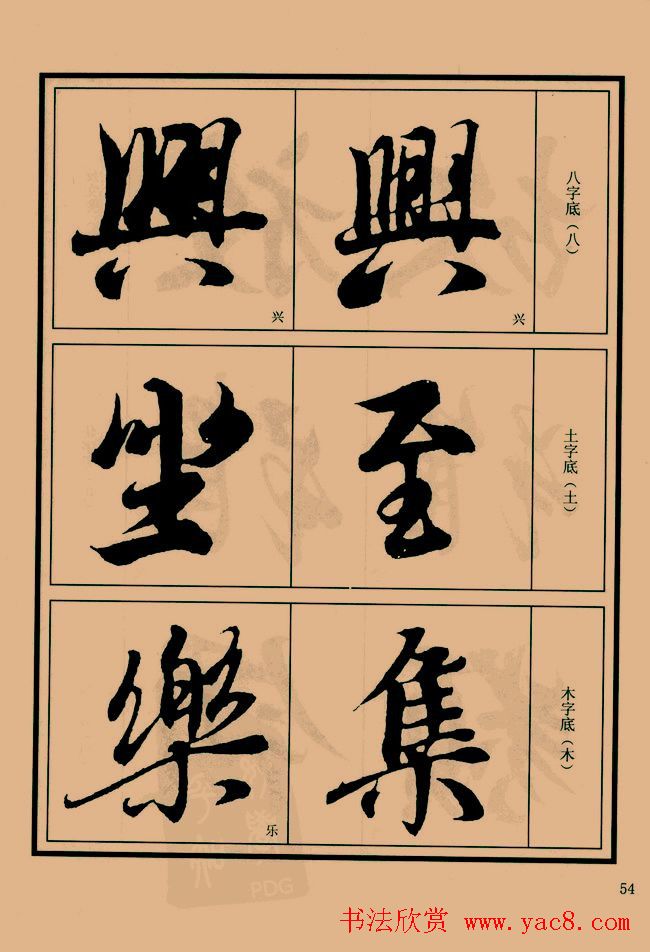 八字底（八）
興
兴
興
兴
土字底（土）
至
坐
木字底（木）
集
樂
乐
PDG
54
书法欣赏 www.yac8.com